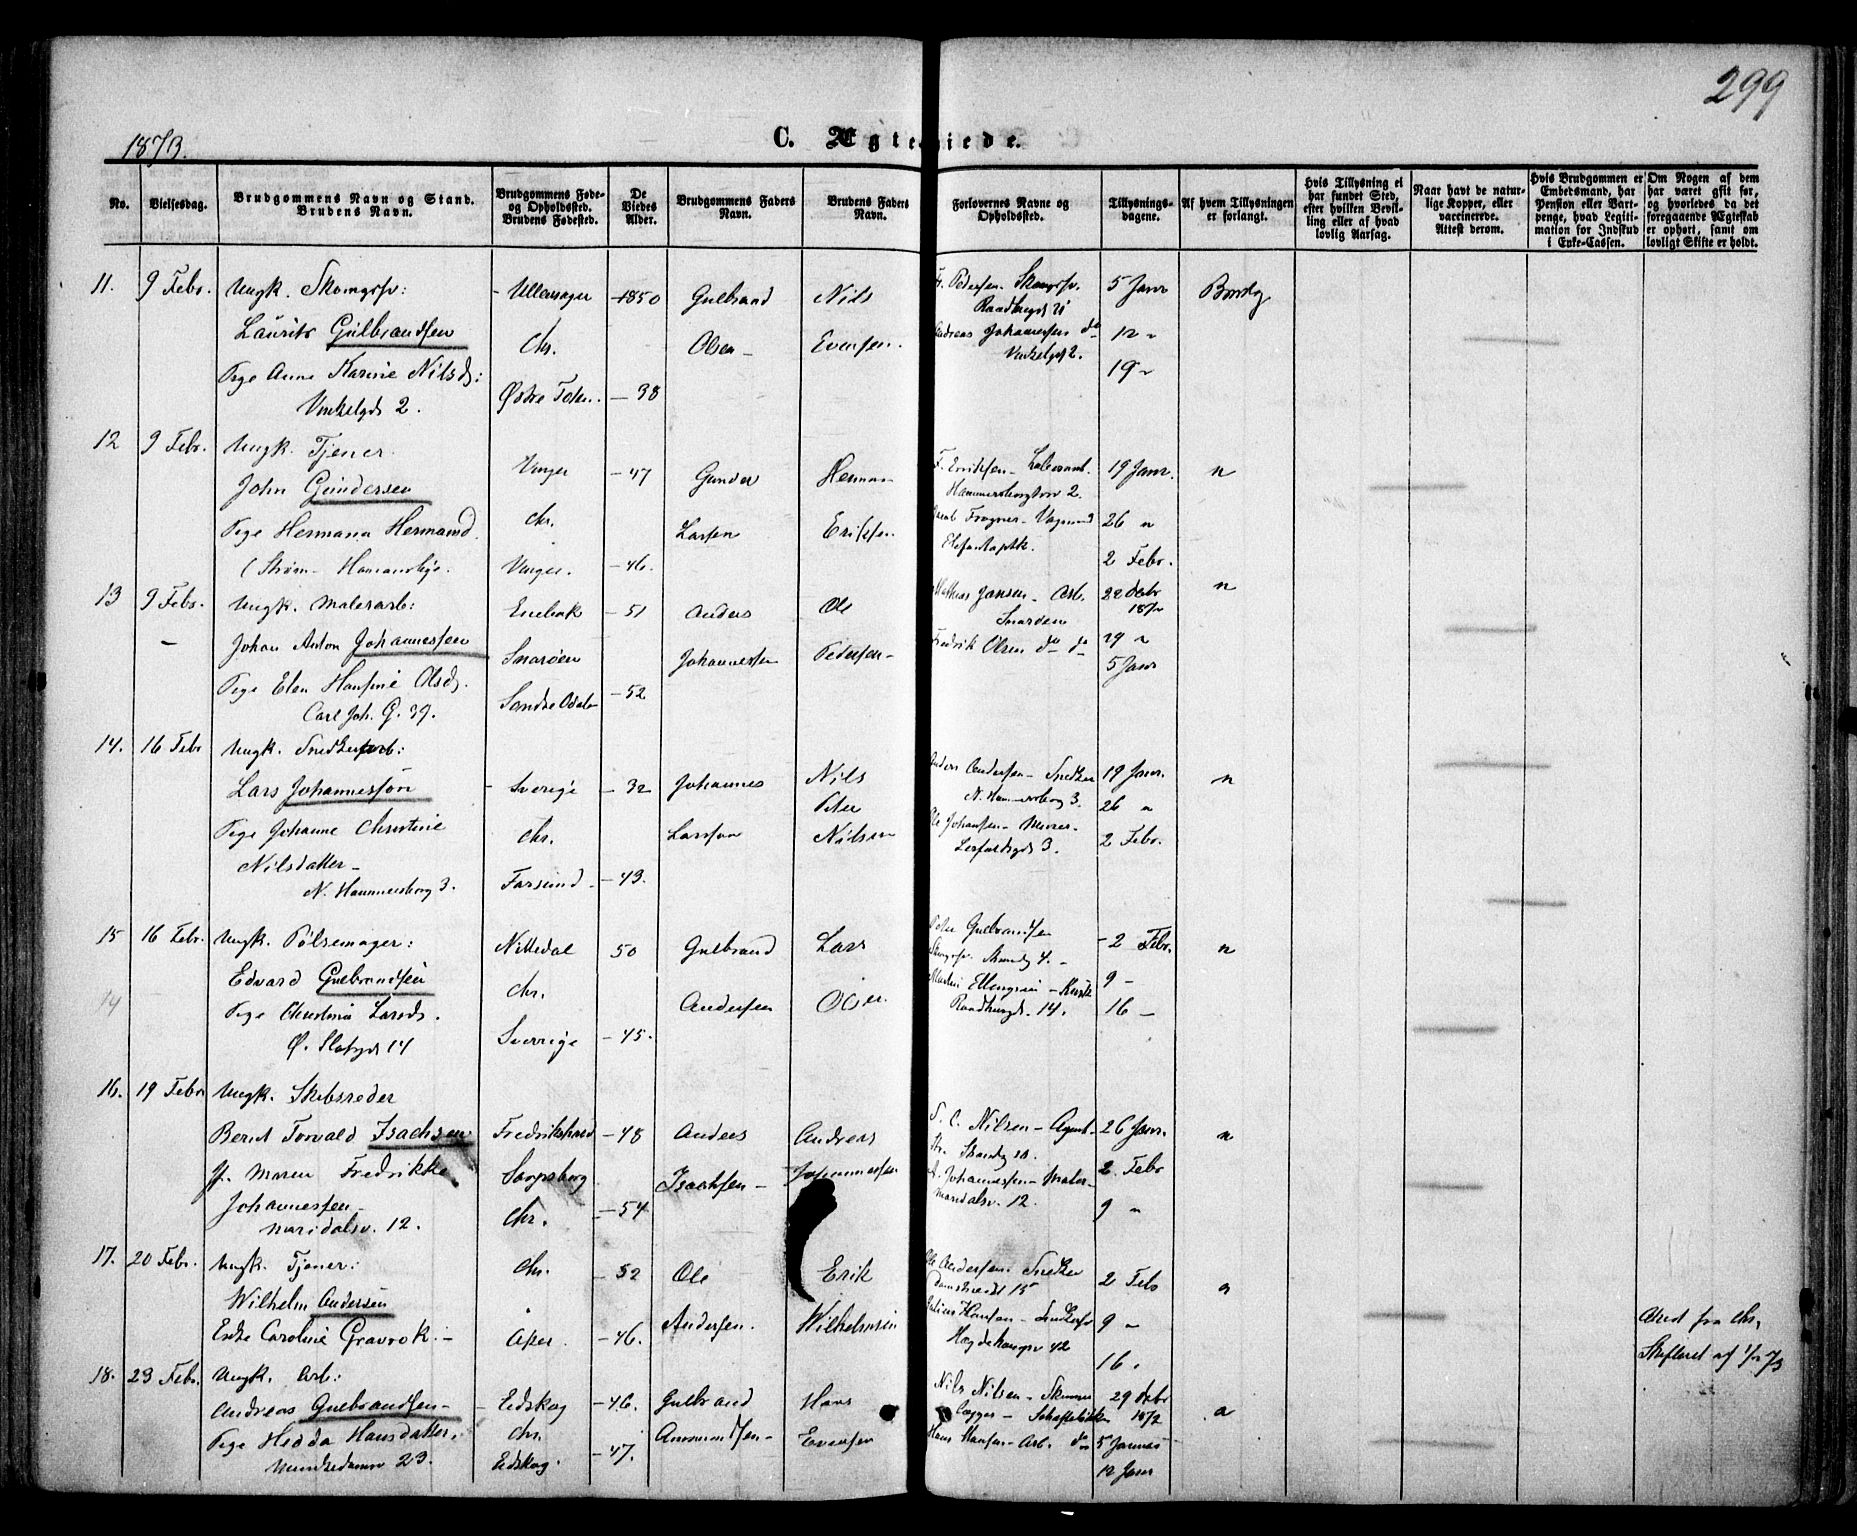 299
1873.
C. Ægte iede.
No.
Vielsesdag.
Brudgommens Navn og Stand.
Brudens Navn.
Brudgommens Føde-
og Opholdssted.
Brudens Fødested.
De
Viedes
Alder.
Brudgommens Faders
Navn.
Brudens Faders
Navn.
Forlovernes Navne og
Opholdssted.
Tillysnings-
dagene.
Af hvem Tillysningen
er forlangt.
Hvis Tillysning ei
har fundet Sted,
efter hvilken Bevil-
ling eller af hvad
lovlig Aarsag.
Naar havt de natur-
lige Kopper, eller
vaccinerede.
Attest derom.
Hvis Brudgommen er
Embedsmand, har
Pension eller Vart-
penge, hvad Legiti-
mation for Indskud
i Enke-Cassen.
Om Nogen af dem
har været gift før,
og hvorledes da det
foregaaende Ægteskab
er ophørt, samt om
lovligt Skifte er holdt.
11. 9 Febr. Ungk. Skomgrsv: Ullensager 1850 Gulbrand Nils Fr. Pedersen Skomgrsv. 5 Janr
Laurits Gulbrandsen Chr. Olsen Evensen. Andreas Johannessen do 12 "
Pige Anne Karine Nilsd: Østre Toten. - 38 19 "
12 9 Febr. Ungk. Tjener. Vinger - 47 Gunder Herman F. Eriksen 19 Janr. "
John Gundersen Chr. Larsen Eriksen 26 "
Pige Hermana Hermansd. Vinger. - 46. 2 Febr.
13 9 Febr. Ungk. Malerarb: Enebak - 51 Anders Ole Mathias Jansen - Arb. 22 Debr 1872 "
Johan Anton Johannessen Snarøen Johannessen Pedersen Snarøen
Pige Elen Hansine Olsd. Søndre Odalen - 52 Fredrik Olsen do do 29 "
Carl Joh. G. 37. 5 Janr
14. 16 Febr Ungk. Snedkerarb: Anders Andersen - Snedker 19 Janr. "
Lars Johannesson - Sverige - 32 Johannes Nils Peter N. Hammersborg 3. 26 "
Pige Johanne Christine Chr. Larsson Nilsen Ole Johansen - Murer 2 Febr.
Nilsdatter
N. Hammersborg 3. Farsund - 43.
15 16 Febr. Ungk. Pølsemager: Nittedal 50 Gulbrand Lars Peter Gulbrandsen - 2 Febr. "
Edvard Gulbrandsen Chr. Andersen Olsen Skomgrsv. 9 -
Pige Christine Larsd. Raadhusgd. 14. 16 -
Ø. Slotsgd 14 Sverrige - 45.
14
16. 19 Febr Ungk. Skibsreder
Bernt Torvald Isachsen Fredrikshald - 48 Anders Andreas S. C. Nilsen - Agent 26 Janr. "
Jf. Maren Fredrikke Sarpsborg Isachsen - Johannessen Johannessen - Maler 2 Febr
Johannessen Maridalsv. 12. 9 "
Maridalsv. 12. Chr. - 54
17. 20 Febr. Ungk. Tjener: Chr. - 52 Ole Erik Ole Andersen. Snedker 2 Feb "
Wilhelm Andersen Andersen. Wilhelmsen Julius Hansen - Snedkersv 9 "
Enke Caroline Gravrok. - Aker - 46. Hegdehaugsv 42 16.
Attest fra Chr.
Skifteret af
18. 23 Febr. Ungk. Arb: Nils Nilsen 29 Debr 1872
Andreas Gulbrandsen - Eidskog - 46. Gulbrand Hans
Pige Hedda Hansdatter. Chr. - 47. Amundsen - Evensen Hans Hansen - Arb. do 5 Januar
Munkedamsv 23. Eidskog. 12 Janr